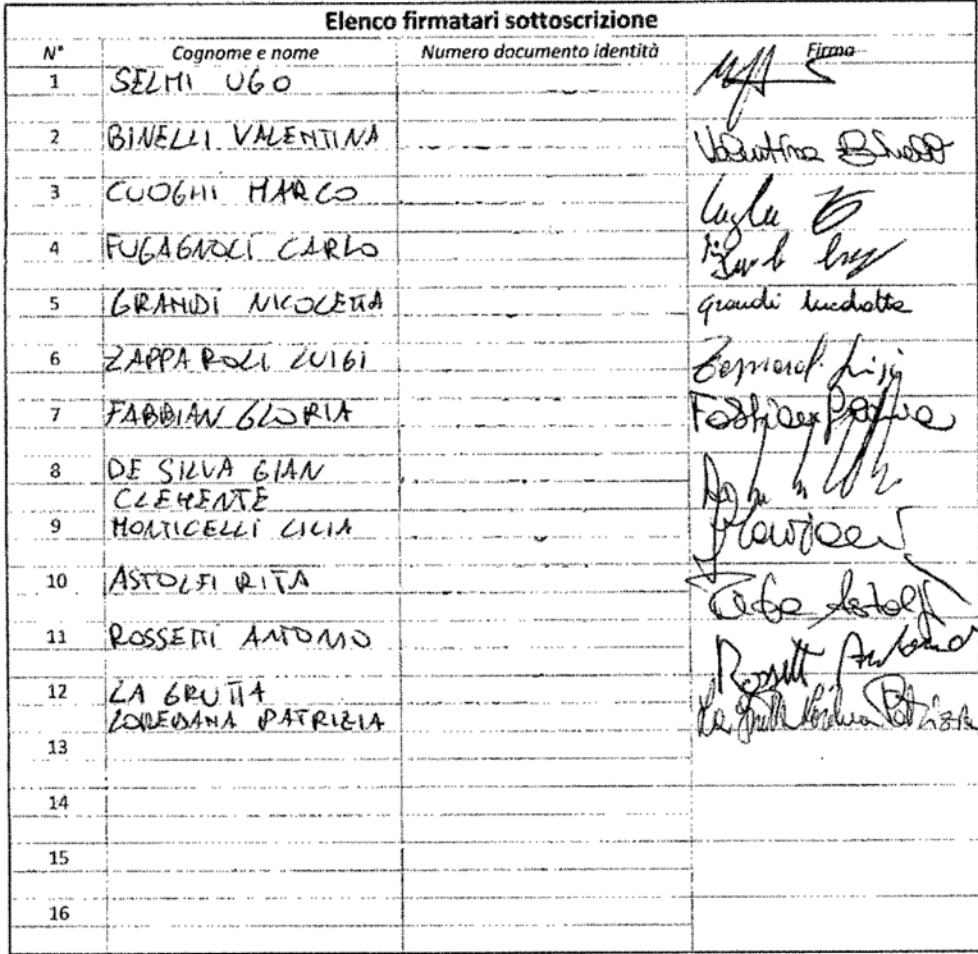 Elenco firmatari sottoscrizione
N° Cognome e nome Numero documento identità Firma
1 SELMI UGO
2 BINELLI VALENTINA Valentina Binelli
3 CUOGHI MARCO
4 FUGAGNOLI CARLO
5 GRANDI NICOLETTA grandi
6 ZAPPAROLI LUIGI Luigi
7 FABBIAN GLORIA
8 DE SILVA GIAN
CLEMENTE
9 MONTICELLI LILIA
10 ASTOLFI RITA Rita Astolfi
11 ROSSETTI ANTONIO Rossetti Antonio
12 LA GRUTTA
LOREDANA PATRIZIA La Grutta Loredana Patrizia
13
14
15
16